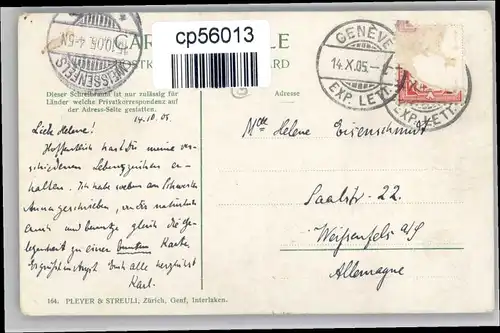 cp56013
CAR LE
POSTK ARD
WEISSENFELS
.10.05. 4-5N
GENÈVE
14.X.05.
EXP. LETT.
EXP. LETT.
Dieser Schreibraum ist nur zulässig für
Länder welche Privatkorrespondenz auf
der Adress-Seite gestatten.
Adresse
14.10.05
Liebe Helene!
Hoffentlich hast du meine ver-
schiedenen Lebenszeichen er-
halten. Ich habe soeben an Schwester
Anna geschrieben, an die natürlich
auch und benutze gleich die Ge-
legenheit zu einer bunten Karte.
Es grüsst Euch alle herzlichst
Karl.
Mlle Helene Eisenschmidt
Saalstr. 22.
Weißenfels a/S
Allemagne
164. PLEYER & STREULI, Zürich, Genf, Interlaken.